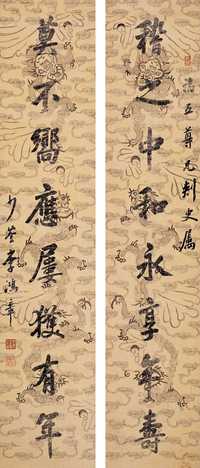 五尊兄刺史屬
稽之中和永享年壽
莫不嚮應屢獲有年
少荃李鴻章